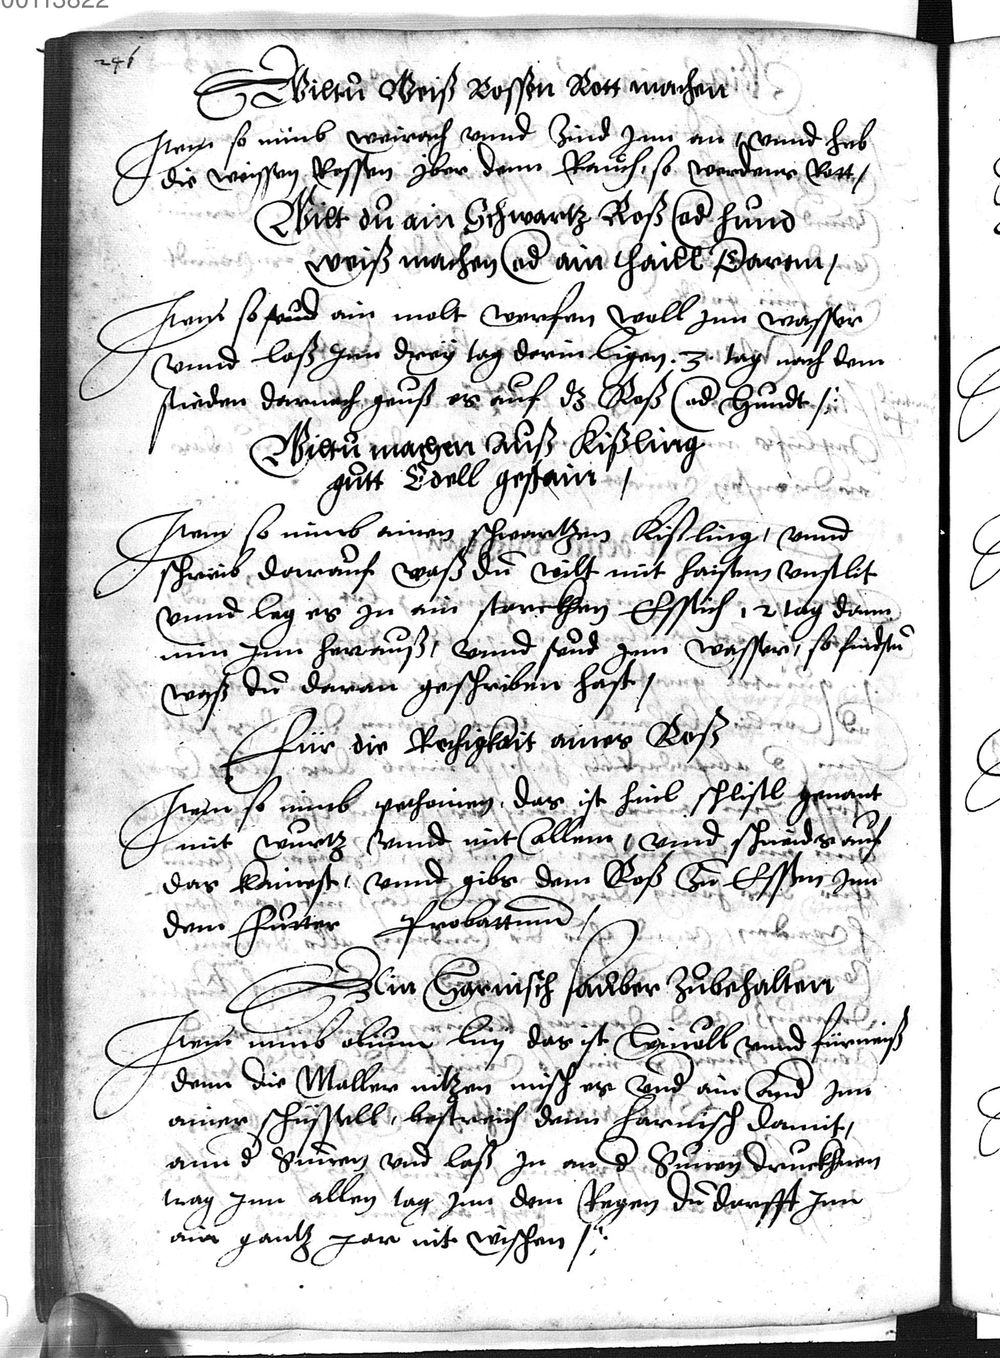 00113822
246
Wiltu Weiß Rossen Rott machen
Item so nimb weirach vnnd Zind Inn an, vnnd heb
die weissen Rossen yber denn Rauch, so werdens Rott,
Wilt du ain Schwartz Roß od hund
weiß machen od ain thaill Darvon,
Item so seud ain molt werfen woll Inn wasser
vnnd laß Inn drey tag darin ligen. 3. tag nach dem
sieden darnach geuß es auf dz Roß od Hundt
Wiltu machen Auß Kißling
gutt Edell gestain,
Item so nimb ainen schwartzen Kißling, vnnd
schreib darauf waß du wilt mit haißem vnslit
vnnd leg es In ain starckhen Essich 12 tag dann
nim Inn herrauß, vnnd seud Inn wasser, so findstu
waß du daran geschriben hast,
Für die Rechigkait aines Roß
Item so nimb das ist himl schlissl genant
mit wurtz vnnd mit allem, vnnd schneids auf
das klainest, vnnd gibs dem Roß Zu Essen Inn
dem Fuetter Probattumm,
Ain Harnisch sauber Zubehalten
Item nimb olium lini das ist Linoll vnnd fürneiß
denn die Maller nitzen misch es vnd ain and Inn
ainer schissell, bestreich denn harnisch damit,
ann d Sunen vnd laß In an d Sunen druckhnen
trag Inn allen tag Inn dem Regen du darffst Inn
ain gantz Jar nit wischen